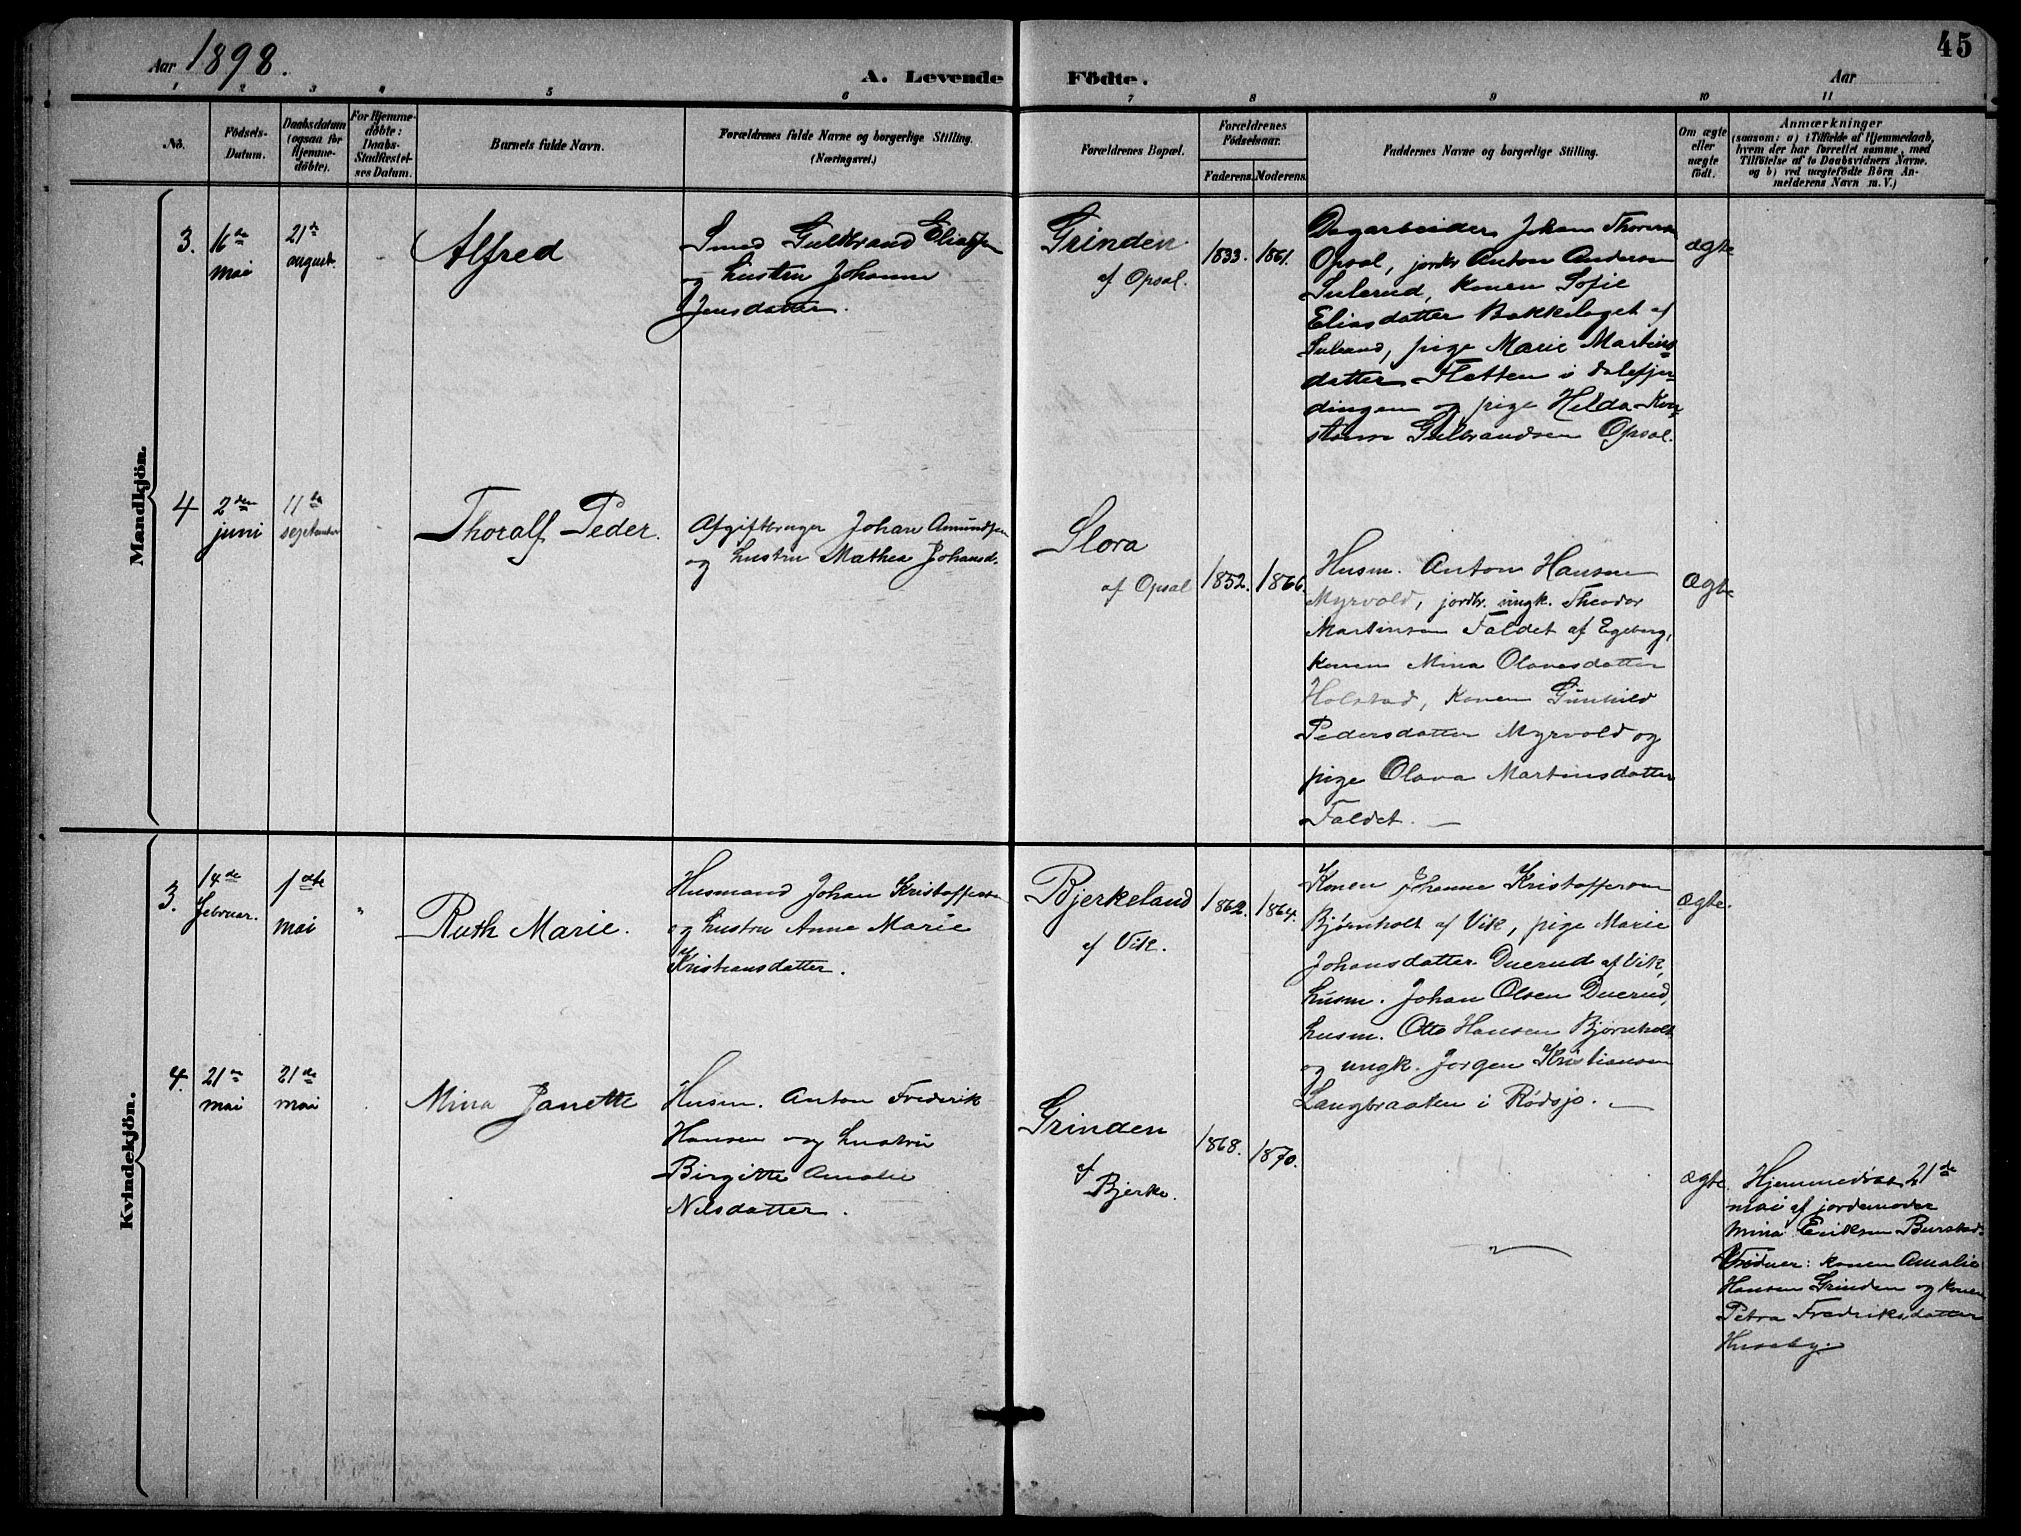 45
Aar 1898.
A. Levende Födte.
Aar
1 2 3 4 5 6 7 8 9 10 11
No.
Födsels-
Datum.
Daabsdatum
(ogsaa for
Hjemme-
döbte).
For Hjemme-
döbte:
Daabs-
Stadfæstel-
ses Datum.
Barnets fulde Navn.
Forældrenes fulde Navne og borgerlige Stilling.
(Næringsvei.)
Forældrenes Bopæl.
Forældrenes
Födselsaar.
Faderens.
Moderens.
Faddernes Navne og borgerlige Stilling.
Om ægte
eller
uægte
födt.
Anmærkninger
(saasom: a) i Tilfælde af Hjemmedaab,
hvem der har forrettet samme, med
Tilföielse af to Daabsvidners Navne.
og b) ved uægtefödte Börn An-
melderens Navn m. V.)
Mandkjön.
3.
16de
mai
21de
august.
Alfred
Smed Gulbrand Eliassen
og hustru Johanne
Jensdatter.
Grinden
af Opsal.
1833.
1861.
Dagarbeider Johan Thoresen
Opsal, jordbr Anton Andersen
Sulerud, konen Sofie
Eliasdatter Bakkelaget af
Sulerud, pige Marie Martins
datter Fletten i Dalefjer-
dingen og pige Hilda Kon-
stanse Gulbrandsen Opsal.
ægte
4
2den
juni
11te
september
Thoralf Peder.
Afgiftbruger Johan Amundsen
og hustru Mathea Johansd.
Slora
af Opsal
1852.
1866.
Husm. Anton Hansen
Myrvold, jordbr. ungk. Theodor
Martinsen Faldet af Egeberg,
konen Mina Olavesdatter
Holstad, konen Gunhild
Pedersdatter Myrvold og
pige Olava Martinsdatter
Faldet. —
Ægte
Kvindekjön.
3.
14de
februar.
1ste
mai
"
Ruth Marie.
Husmand Johan Kristoffersen
og hustru Anne Marie
Kristiansdatter.
Bjerkeland
af Vik.
1862.
1864.
Konen Johanne Kristoffersen
Bjørnholt af Vik, pige Marie
Johansdatter Duerud af Vik,
husm. Johan Olsen Duerud,
husm. Otto Hansen Bjørnholt
og ungk. Jørgen Kristiansen
Langbraaten i Rødsjø. —
Ægte.
4.
21de
mai
21de
mai
Mina Janette
Husm. Anton Frederik
Hansen og hustru
Birgitte Amalie
Nilsdatter.
Grinden
af
Bjerke.
1868.
1870.
"
ægte.
Hjemmedøbt 21de
mai af jordemoder
Mina Eriksen Burstad.
Vidner: konen Amalie
Hansen Grinden og konen
Petra Fredriksdatter
Huseby.